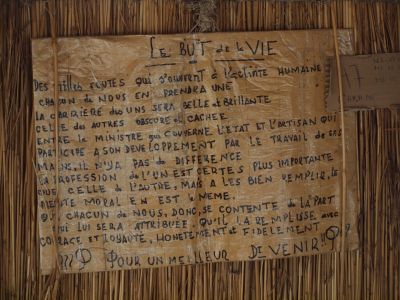 LE BUT de la VIE
DES milles FENTES qui s'ouvrent à l'activite HUMAINE
CHACUN de NOUS EN PRENDRA UNE
LA CARRIÈRE des UNS SERA BELLE et BRILLANTE
CELLE des AUTRES OBSCURE et CACHEE
ENTRE le MINISTRE qui GOUVERNE L'ETAT ET L'ARTISAN QUI
PARTICIPE A SON DEVELOPPEMENT PAR LE TRAVAIL de SES
MAINS, IL N'YA PAS de DIFFERENCE
LA PROFESSION de L'UN EST CERTES PLUS IMPORTANTE
QUE CELLE DE L'AUTRE, MAIS A LES BIEN REMPLIR, le
MERITE MORAL EN EST le MEME.
QUE CHACUN de NOUS, DONC, SE CONTENTE de LA PART
QUI LUI SERA ATTRIBUEE. QU'IL LA REMPLISSE avec
CORAGE et LOYAUTE, HONETEMENT et FIDELEMENT
POUR UN MEILLEUR DEVENIR"
17